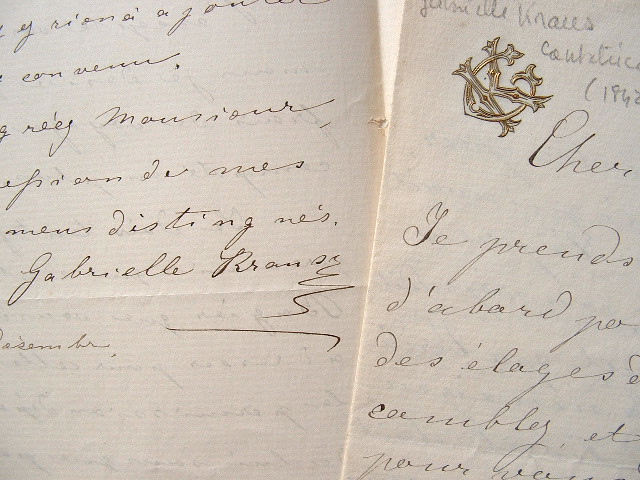 y rien à ajouter
convenu.
Monsieur,
de mes
distingués.
Gabrielle Krauss
Gabrielle Krauss
Cantatrice
(184
Cher
Je prends
d'abord po
des éloges
comblez, et
pour vous